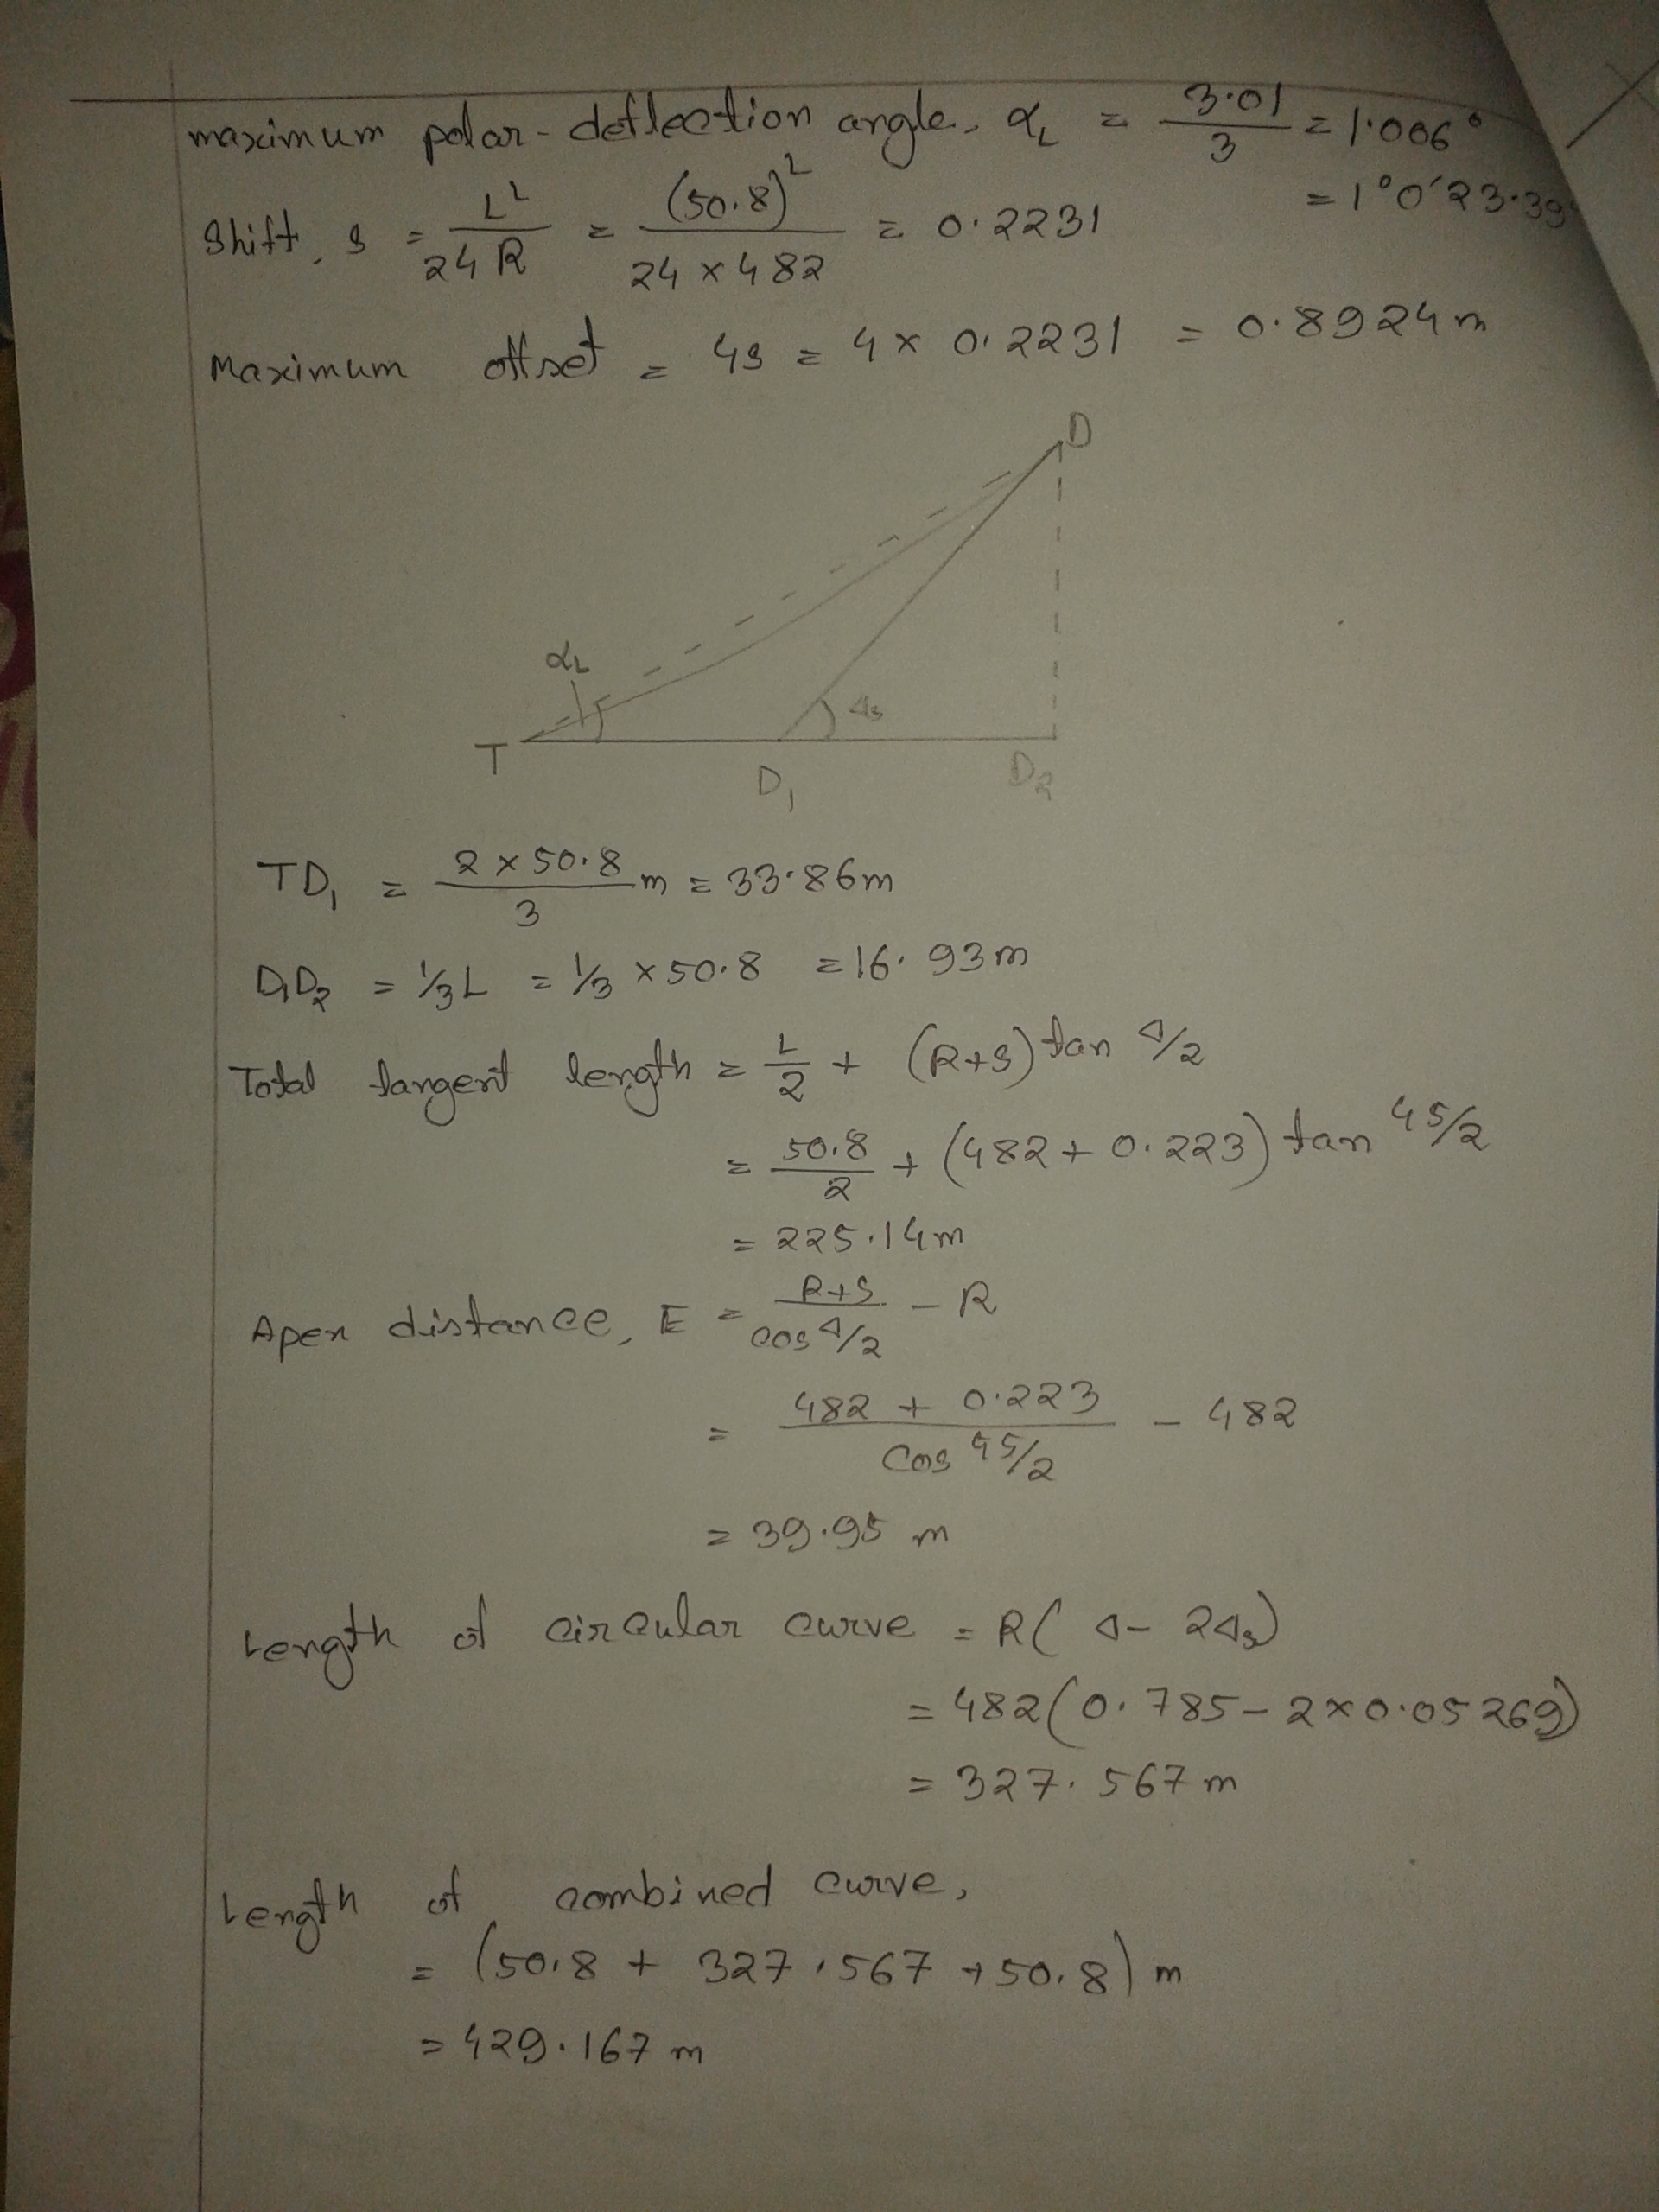 maximum polar-deflection angle, αL = 3.01/3 = 1.006°
= 1°0′23.39
Shift, s = L²/24R = (50.8)²/24×482 = 0.2231
Maximum offset = 4s = 4×0.2231 = 0.8924m
D
αL
Δs
T
D₁
D₂
TD₁ = 2×50.8/3 m = 33.86m
D₁D₂ = ⅓L = ⅓×50.8 = 16.93m
Total tangent length = L/2 + (R+S) tan Δ/2
= 50.8/2 + (482+0.223) tan 45/2
= 225.14m
Apex distance, E = R+S/cos Δ/2 − R
= 482 + 0.223/cos 45/2 − 482
= 39.95 m
Length of circular curve = R(Δ− 2Δs)
= 482(0.785−2×0.05269)
= 327.567m
Length of combined curve,
= (50.8 + 327.567 +50.8) m
= 429.167 m